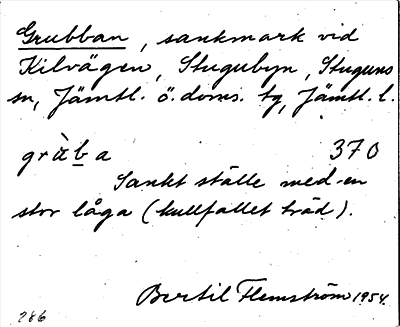 Grubban, sankmark vid
Kilvägen, Stugubyn, Stuguns
sn, Jämtl. ö. doms. tg, Jämtl. l.
grùba 370
Sankt ställe med en
stor låga (kullfallet träd).
Bertil Flemström 1954.
286